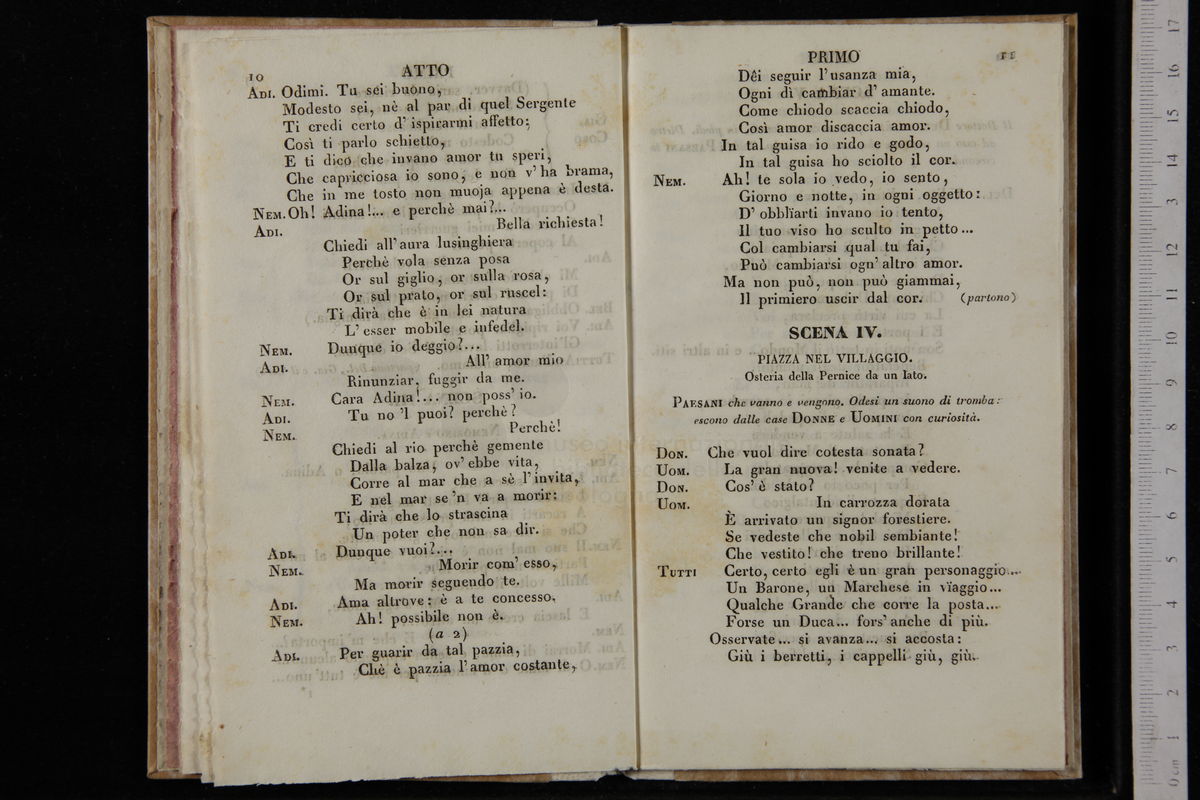 10 ATTO
ADI. Odimi. Tu sei buono,
Modesto sei, nè al par di quel Sergente
Ti credi certo d' ispirarmi affetto;
Così ti parlo schietto,
E ti dico che invano amor tu speri,
Che capricciosa io sono, e non v' ha brama,
Che in me tosto non muoja appena è desta.
NEM. Oh! Adina!... e perchè mai?...
ADI. Bella richiesta!
Chiedi all' aura lusinghiera
Perchè vola senza posa
Or sul giglio, or sulla rosa,
Or sul prato, or sul ruscel:
Ti dirà che è in lei natura
L' esser mobile e infedel.
NEM. Dunque io deggio?...
ADI. All' amor mio
Rinunziar, fuggir da me.
NEM. Cara Adina!... non poss' io.
ADI. Tu no 'l puoi? perchè?
NEM. Perchè!
Chiedi al rio perchè gemente
Dalla balza, ov' ebbe vita,
Corre al mar che a sè l' invita,
E nel mar se 'n va a morir:
Ti dirà che lo strascina
Un poter che non sa dir.
ADI. Dunque vuoi?...
NEM. Morir com' esso,
Ma morir seguendo te.
ADI. Ama altrove: è a te concesso.
NEM. Ah! possibile non è.
(a 2)
ADI. Per guarir da tal pazzia,
Chè è pazzia l' amor costante,
PRIMO 11
Dêi seguir l' usanza mia,
Ogni dì cambiar d' amante.
Come chiodo scaccia chiodo,
Così amor discaccia amor.
In tal guisa io rido e godo,
In tal guisa ho sciolto il cor.
NEM. Ah! te sola io vedo, io sento,
Giorno e notte, in ogni oggetto:
D' obblïarti invano io tento,
Il tuo viso ho sculto in petto...
Col cambiarsi qual tu fai,
Può cambiarsi ogn' altro amor.
Ma non può, non può giammai,
Il primiero uscir dal cor. (partono)
SCENA IV.
PIAZZA NEL VILLAGGIO.
Osteria della Pernice da un lato.
PAESANI che vanno e vengono. Odesi un suono di tromba:
escono dalle case DONNE e UOMINI con curiosità.
DON. Che vuol dire cotesta sonata?
UOM. La gran nuova! venite a vedere.
DON. Cos' è stato?
UOM. In carrozza dorata
È arrivato un signor forestiere.
Se vedeste che nobil sembiante!
Che vestito! che treno brillante!
TUTTI Certo, certo egli è un gran personaggio...
Un Barone, un Marchese in vïaggio...
Qualche Grande che corre la posta...
Forse un Duca... fors' anche di più.
Osservate... si avanza... si accosta:
Giù i berretti, i cappelli giù, giù.